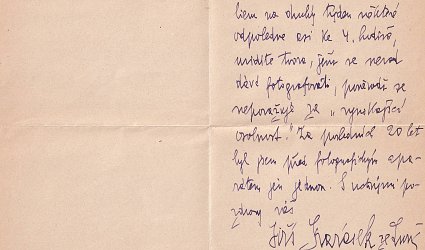 liem na druhý týden některé
odpoledne asi ke 4. hodině,
uvidíte tvora, jenž se nerad
dává fotografovati, poněvadž se
nepovažuje za „vynikající
osobnost.“ Za posledních 20 let
byl jsem před fotografickým apa-
rátem jen jednou. S uctivými po-
zdravy váš
Jiří Karásek ze Lvovic